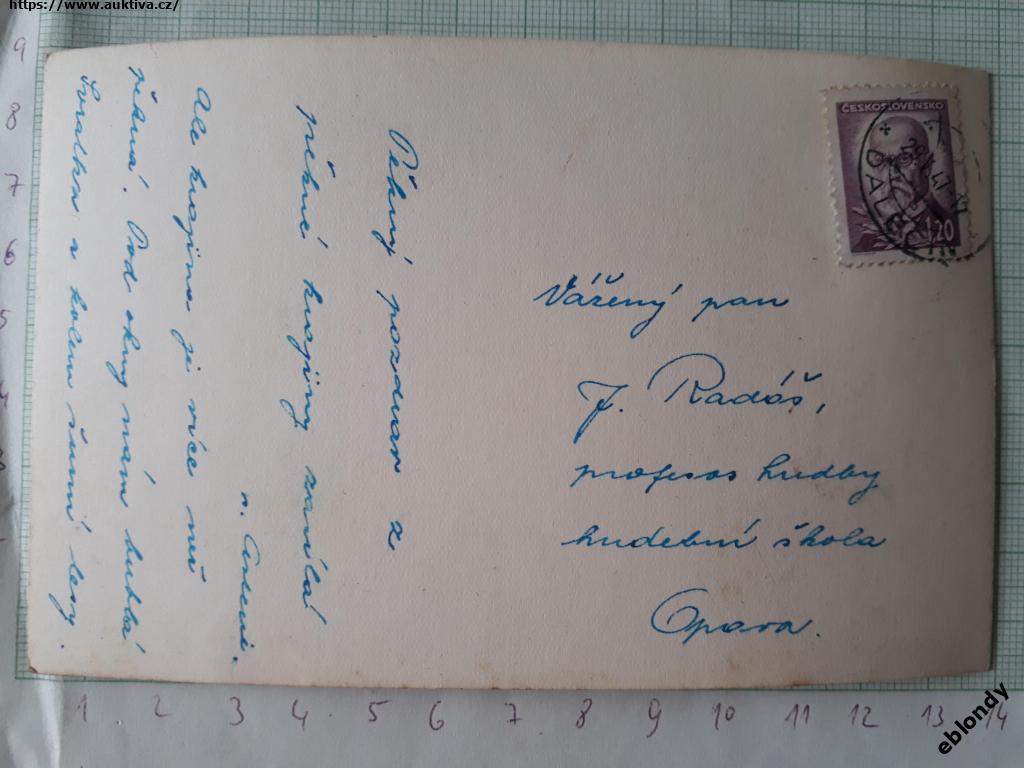 https://www.auktiva.cz/
ČESKOSLOVENSKO
1.20
Vážený pan
J. Radóš,
profesor hudby
hudební škola
Opava.
Pěkný pozdrav z
pěkné krajiny zasílá
n.
Ale krajina je více než
pěkná. Pod okny nám bublá
Svratka a kolem šumí lesy.
9
8
7
6
5
4
1 2 3 4 5 6 7 8 9 10 11 12 13 14
eblondy